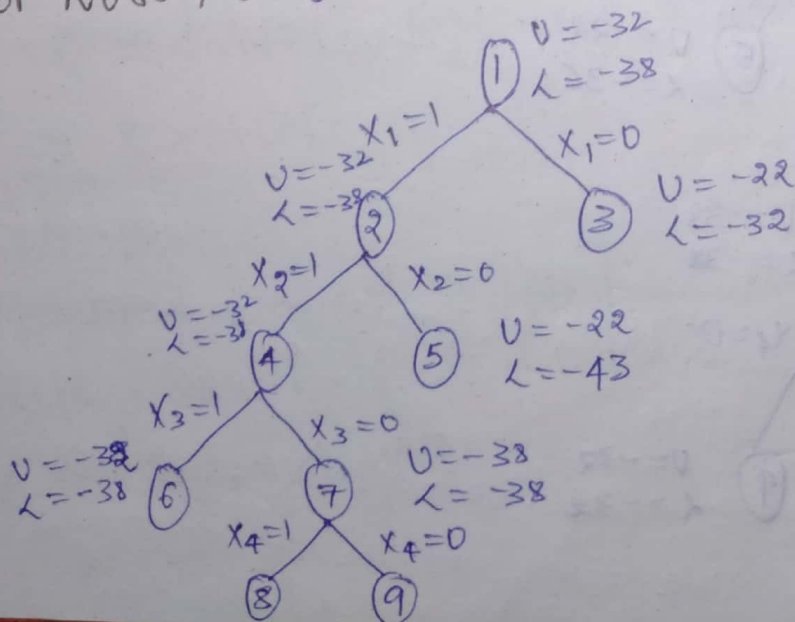 U = -32
1
L = -38
X1=1
X1=0
U = -32
L = -38
2
3
U = -22
L = -32
X2=1
X2=0
U = -32
L = -38
4
5
U = -22
L = -43
X3=1
X3=0
U = -38
L = -38
6
7
U = -38
L = -38
X4=1
X4=0
8
9